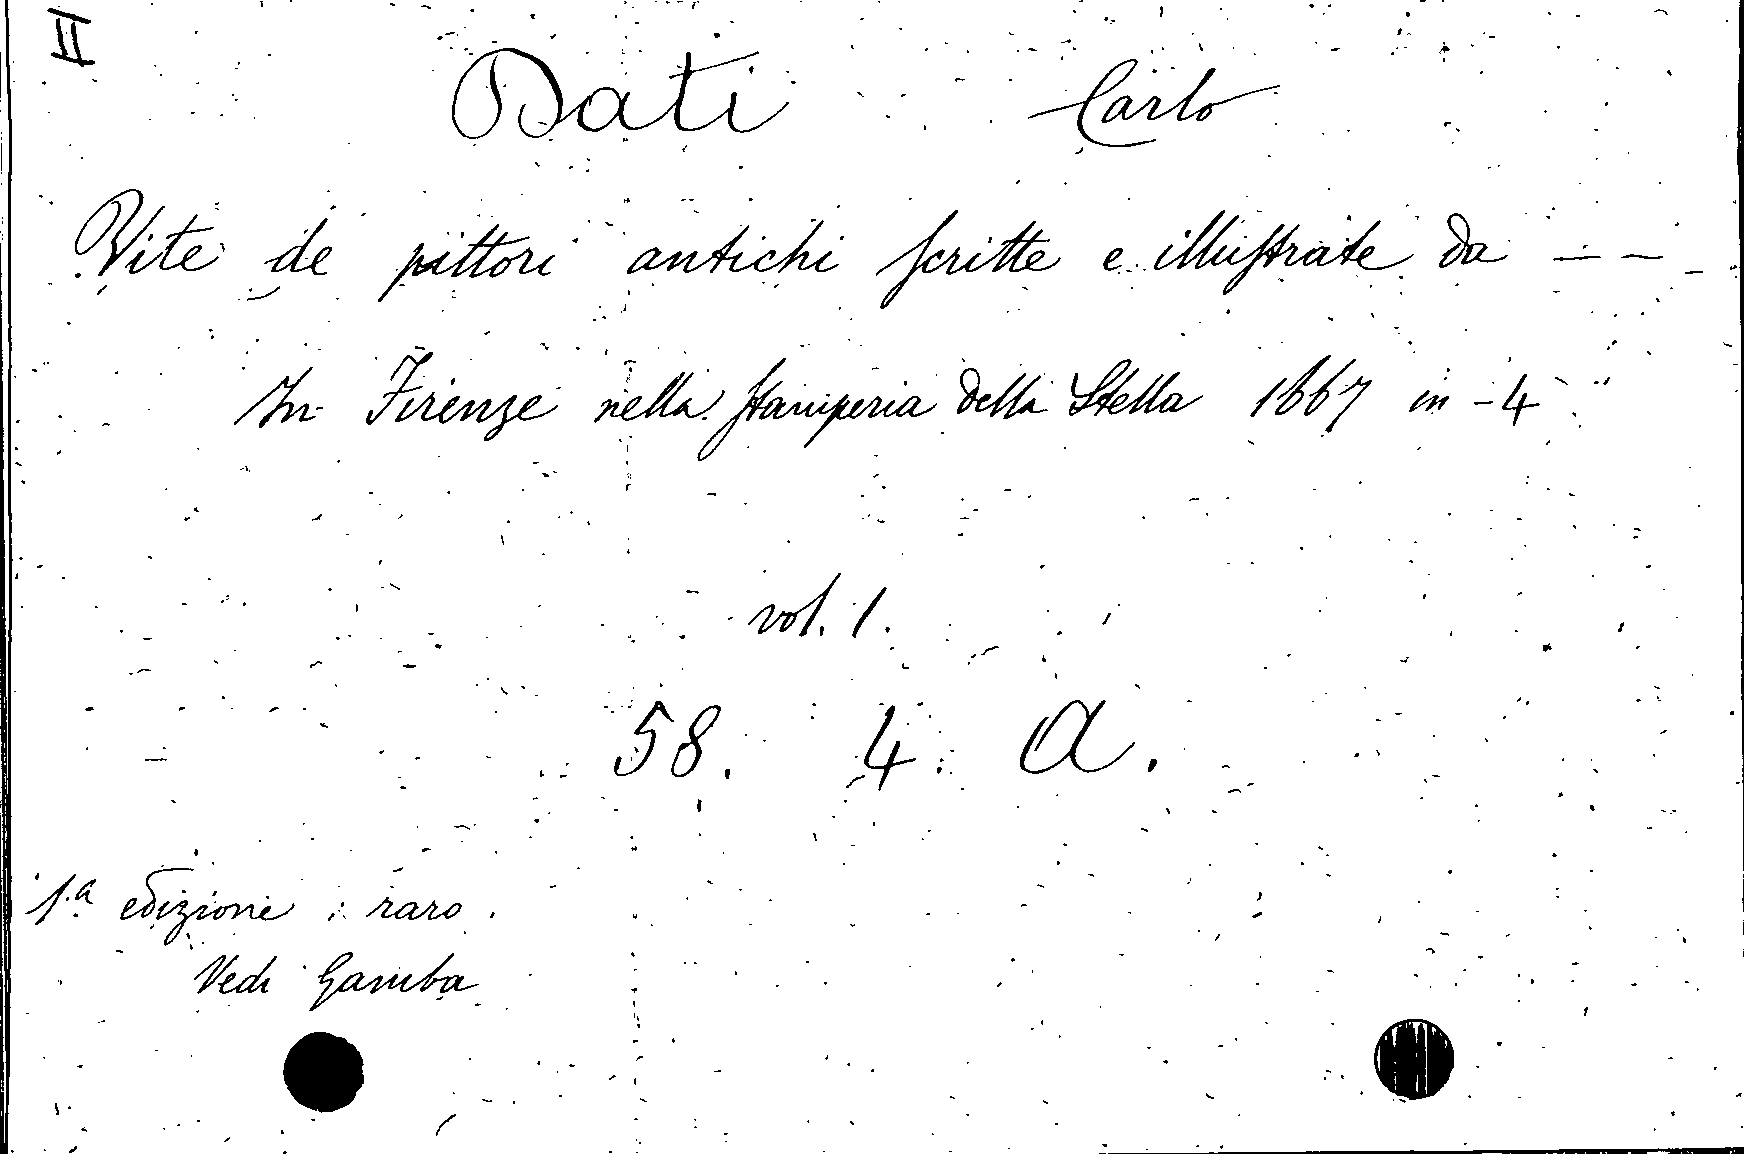 II
Dati Carlo
Vite de pittori antichi scritte e illustrate da - - -
In Firenze nella Stamperia della Stella 1667 in-4°
vol. 1.
58. 4. A.
1.ª edizione : raro.
Vedi Gamba